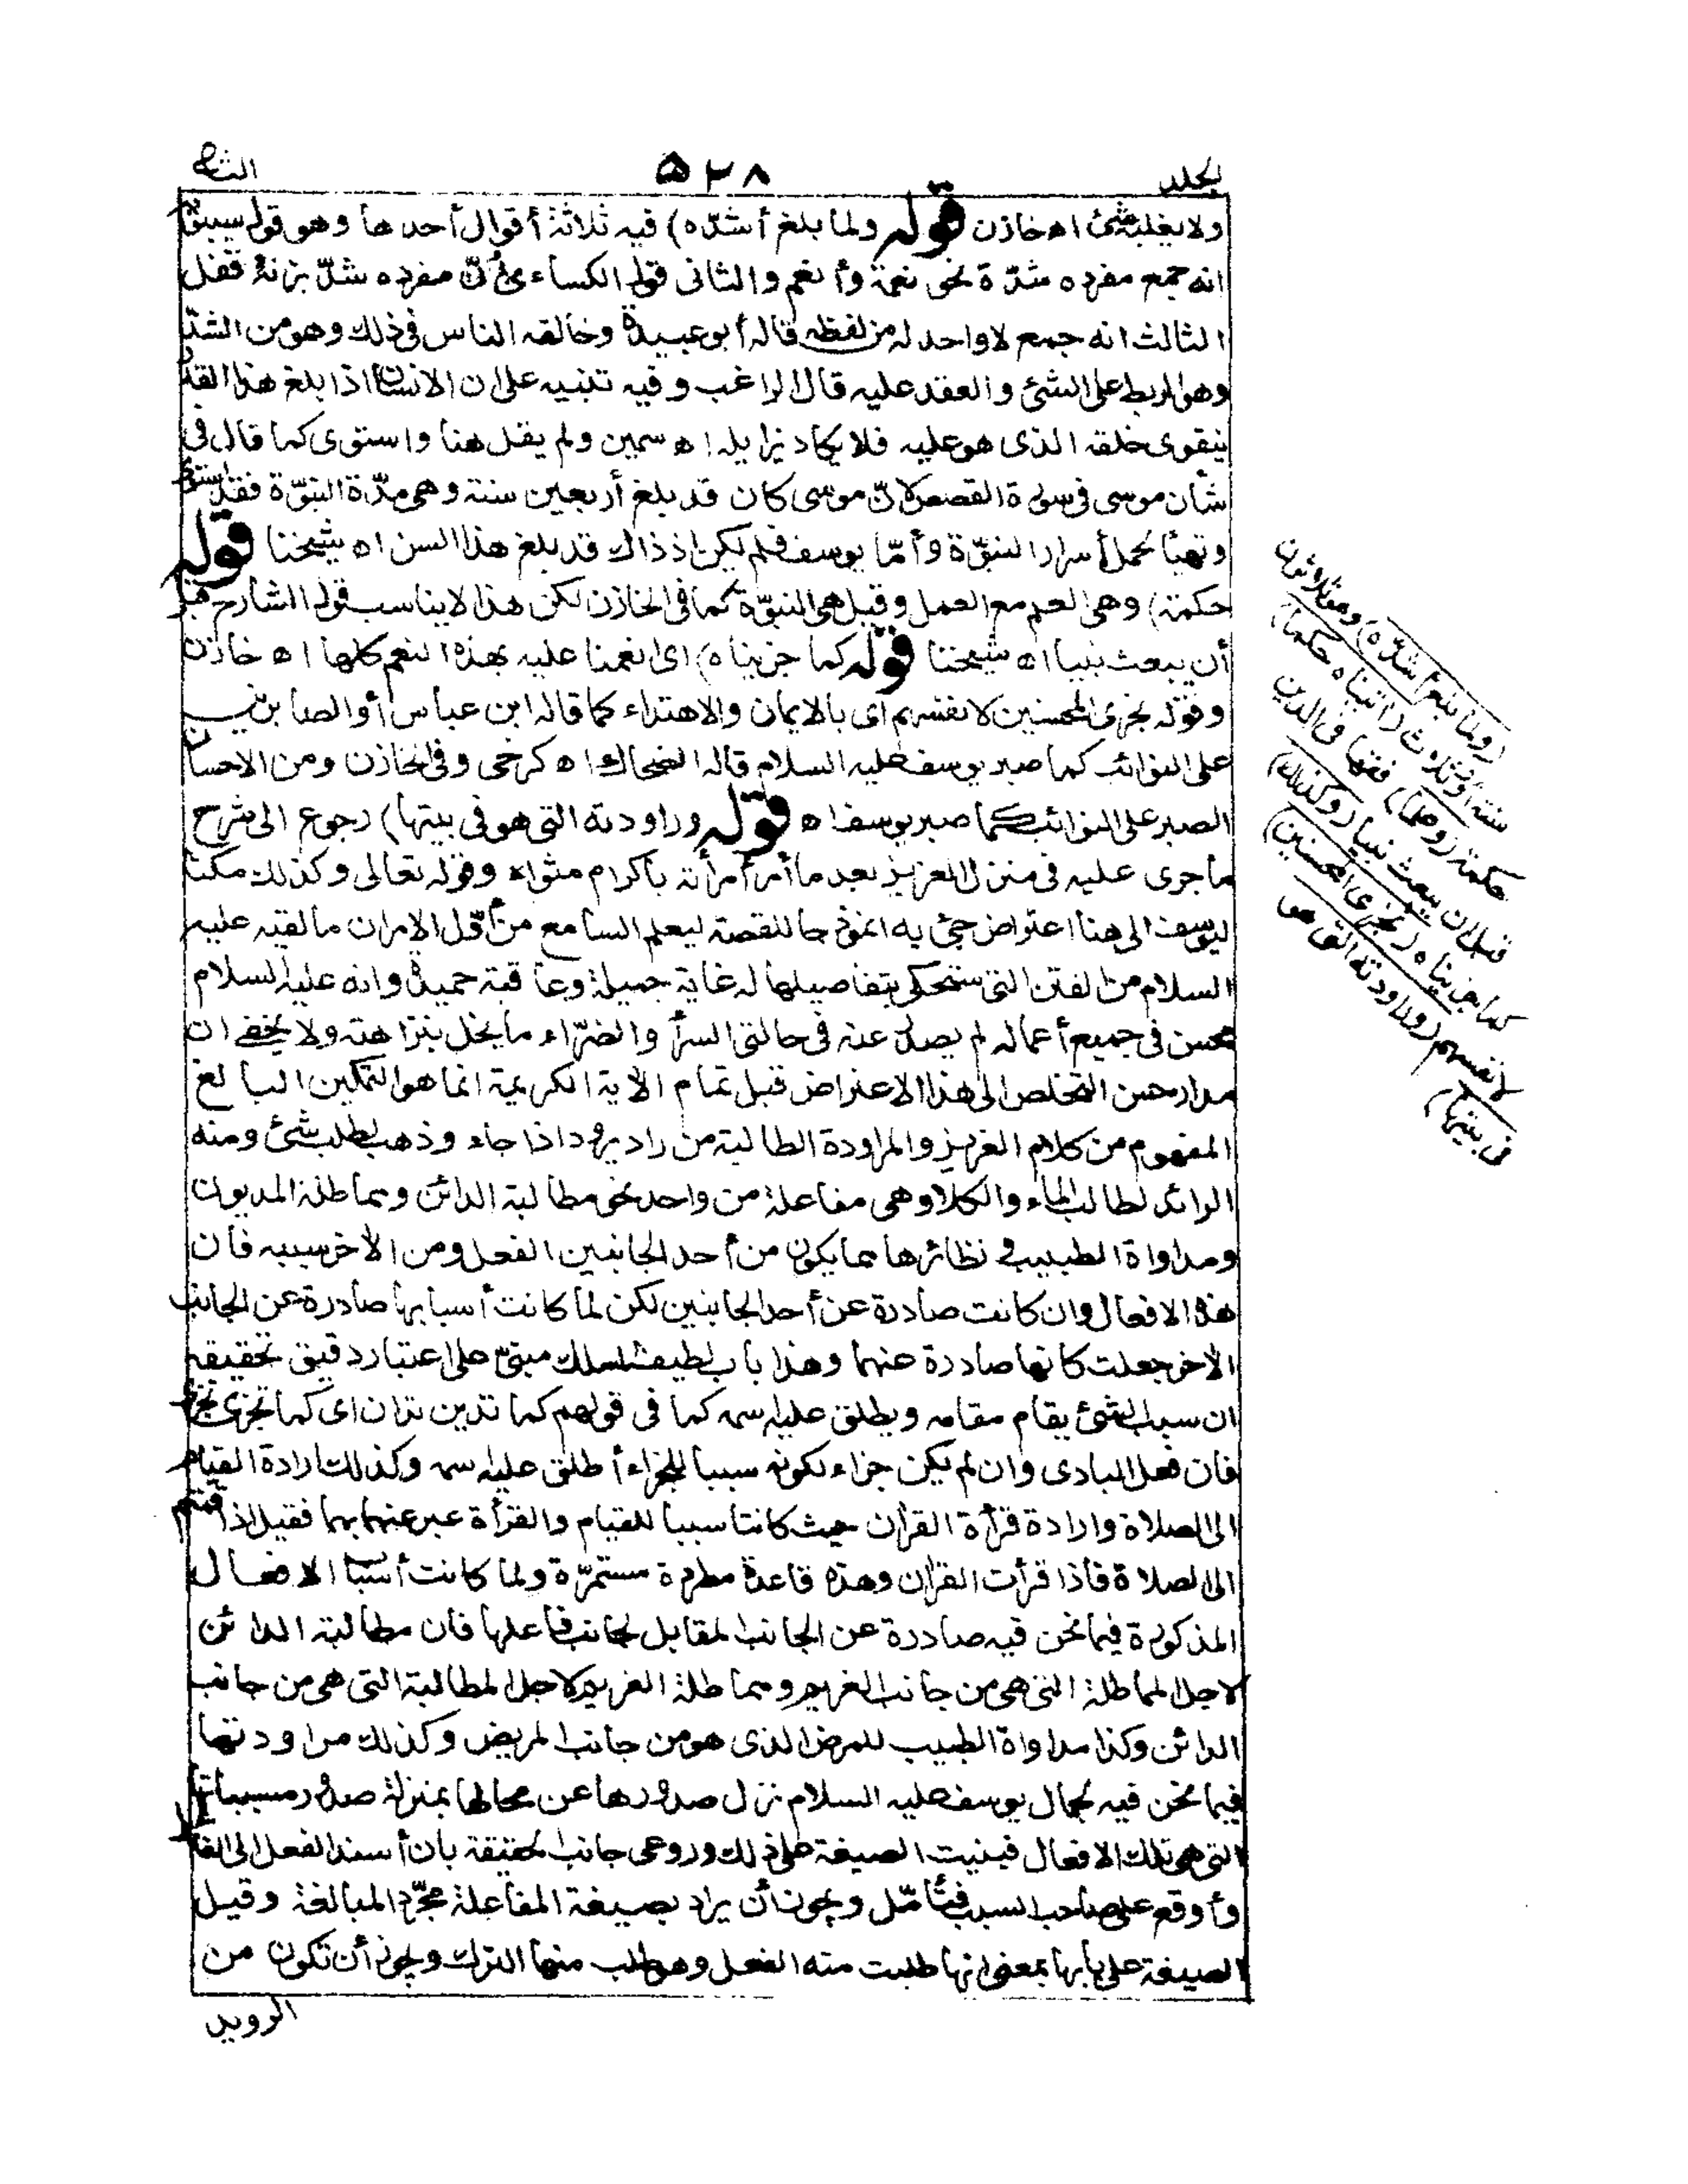 الجلد
۵۲۸
الثانى
ولا يغلبه شئ اه خازن قوله ولما بلغ أشدّه) فيه ثلاثة أقوال أحدها وهو قول سيبويه
انه جمع مفرده شدّة نحو نعمة وأنعم والثانى قول الكساءى أنّ مفرده شدّ بزنة قفل
الثالث انه جمع لا واحد له من لفظه قاله أبو عبيدة وخالفه الناس فى ذلك وهو من الشدّ
وهو الربط على الشئ والعقد عليه قال الراغب وفيه تنبيه على ان الانسان اذا بلغ هذا القدر
يتقوى خلقه الذى هو عليه فلا يكاد يزايله اه سمين ولم يقل هنا واستوى كما قال فى
شأن موسى فى سورة القصص لانّ موسى كان قد بلغ أربعين سنة وهى مدّة النبوّة فقد استوى
وتهيأ لحمل أسرار النبوّة وأمّا يوسف فلم يكن اذ ذاك قد بلغ هذا السن اه شيخنا قوله
حكمة) وهى العلم مع العمل وقيل هى النبوّة كما فى الخازن لكن هذا لا يناسب قول الشارح قبل
أن يبعث نبيا اه شيخنا قوله كما جزيناه) اى أنعمنا عليه بهذه النعم كلها اه خازن
وقوله نجزى المحسنين لانفسهم اى بالايمان والاهتداء كما قاله ابن عباس أو الصابرين
على النوائب كما صبر يوسف عليه السلام قاله الضحاك اه كرخى وفى الخازن ومن الاحسان
الصبر على النوائب كما صبر يوسف اه قوله وراودته التى هو فى بيتها) رجوع الى شرح
ما جرى عليه فى منزل العزيز بعد ما أمر أمرأته باكرام مثواه وقوله تعالى وكذلك مكنا
ليوسف الى هنا اعتراض جئ به انموذجا للقصة ليعلم السامع من أوّل الامر ان ما لقيه عليه
السلام من الفتن التى ستحكى بتفاصيلها له غاية جميلة وعاقبة حميدة وانه عليه السلام
محسن فى جميع أعماله لم يصدر عنه فى حالتى السرأ والضرّاء ما يخل بنزاهته ولا يخفى ان
مدار حسن التخلص الى هذا الاعتراض قبل تمام الآية الكريمة انما هو التمكين البالغ
المفهوم من كلام العزيز والمراودة الطالبة من راد يرود اذا جاء وذهب لطلب شئ ومنه
الرائد لطالب الماء والكلا وهى مفاعلة من واحد نحو مطالبة الدائن ومماطلة المديون
ومداواة الطبيب ونظائرها مما يكون من أحد الجانبين الفعل ومن الآخر سببه فان
هذه الافعال وان كانت صادرة عن أحد الجانبين لكن لما كانت أسبابها صادرة عن الجانب
الآخر جعلت كانها صادرة عنهما وهذا باب لطيف المسلك مبنىّ على اعتبار دقيق تحقيقه
ان سبب الشئ يقام مقامه ويطلق عليه اسمه كما فى قولهم كما تدين تدان اى كما تجزى تجزى
فان فعل البادى وان لم يكن جزاء لكونه سببا للجزاء أطلق عليه اسمه وكذلك ارادة القيام
الى الصلاة وارادة قرأة القرآن حيث كانتا سببا للقيام والقرأة عبر عنهما بهما فقيل اذا قمتم
الى الصلاة فاذا قرأت القرآن وهذه قاعدة مطردة مستمرّة ولما كانت أسباب الافعال
المذكورة فيما نحن فيه صادرة عن الجانب المقابل لجانب فاعلها فان مطالبة الدائن
لاجل المماطلة التى هى من جانب الغريم ومماطلة الغريم لاجل المطالبة التى هى من جانب
الدائن وكذا مداواة الطبيب للمرض الذى هو من جانب المريض وكذلك مراودتها
فيما نحن فيه لجمال يوسف عليه السلام نزل صدورها عن محالها بمنزلة صدور مسبباتها
التى هى تلك الافعال فبنيت الصيغة على ذلك وروعى جانب الحقيقة بان أسند الفعل الى الفاعل
وأوقع على صاحب السبب فتأمّل ويجوز أن يراد بصيغة المفاعلة مجرّد المبالغة وقيل
الصيغة على بابها بمعنى انها طلبت منه الفعل وهو طلب منها الترك ويجوز أن تكون من
الرويد
(ولما بلغ أشدّه) وهو ثلاثون
سنة أو وثلاث (آتيناه حكما)
حكمة (وعلما) فقها فى الدين
قبل ان يبعث نبيا (وكذلك)
كما جزيناه (نجزى المحسنين)
لانفسهم (وراودته التى هو
فى بيتها)